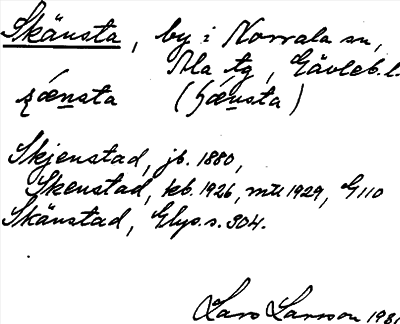 Skänsta, by i Norrala sn,
Ala tg, Gävleb.l.
Skjenstad, jb. 1880,
Skenstad, kb. 1926, mtl 1929, G110
Skänstad, Glys.s. 304.
Lars Larsson 1981